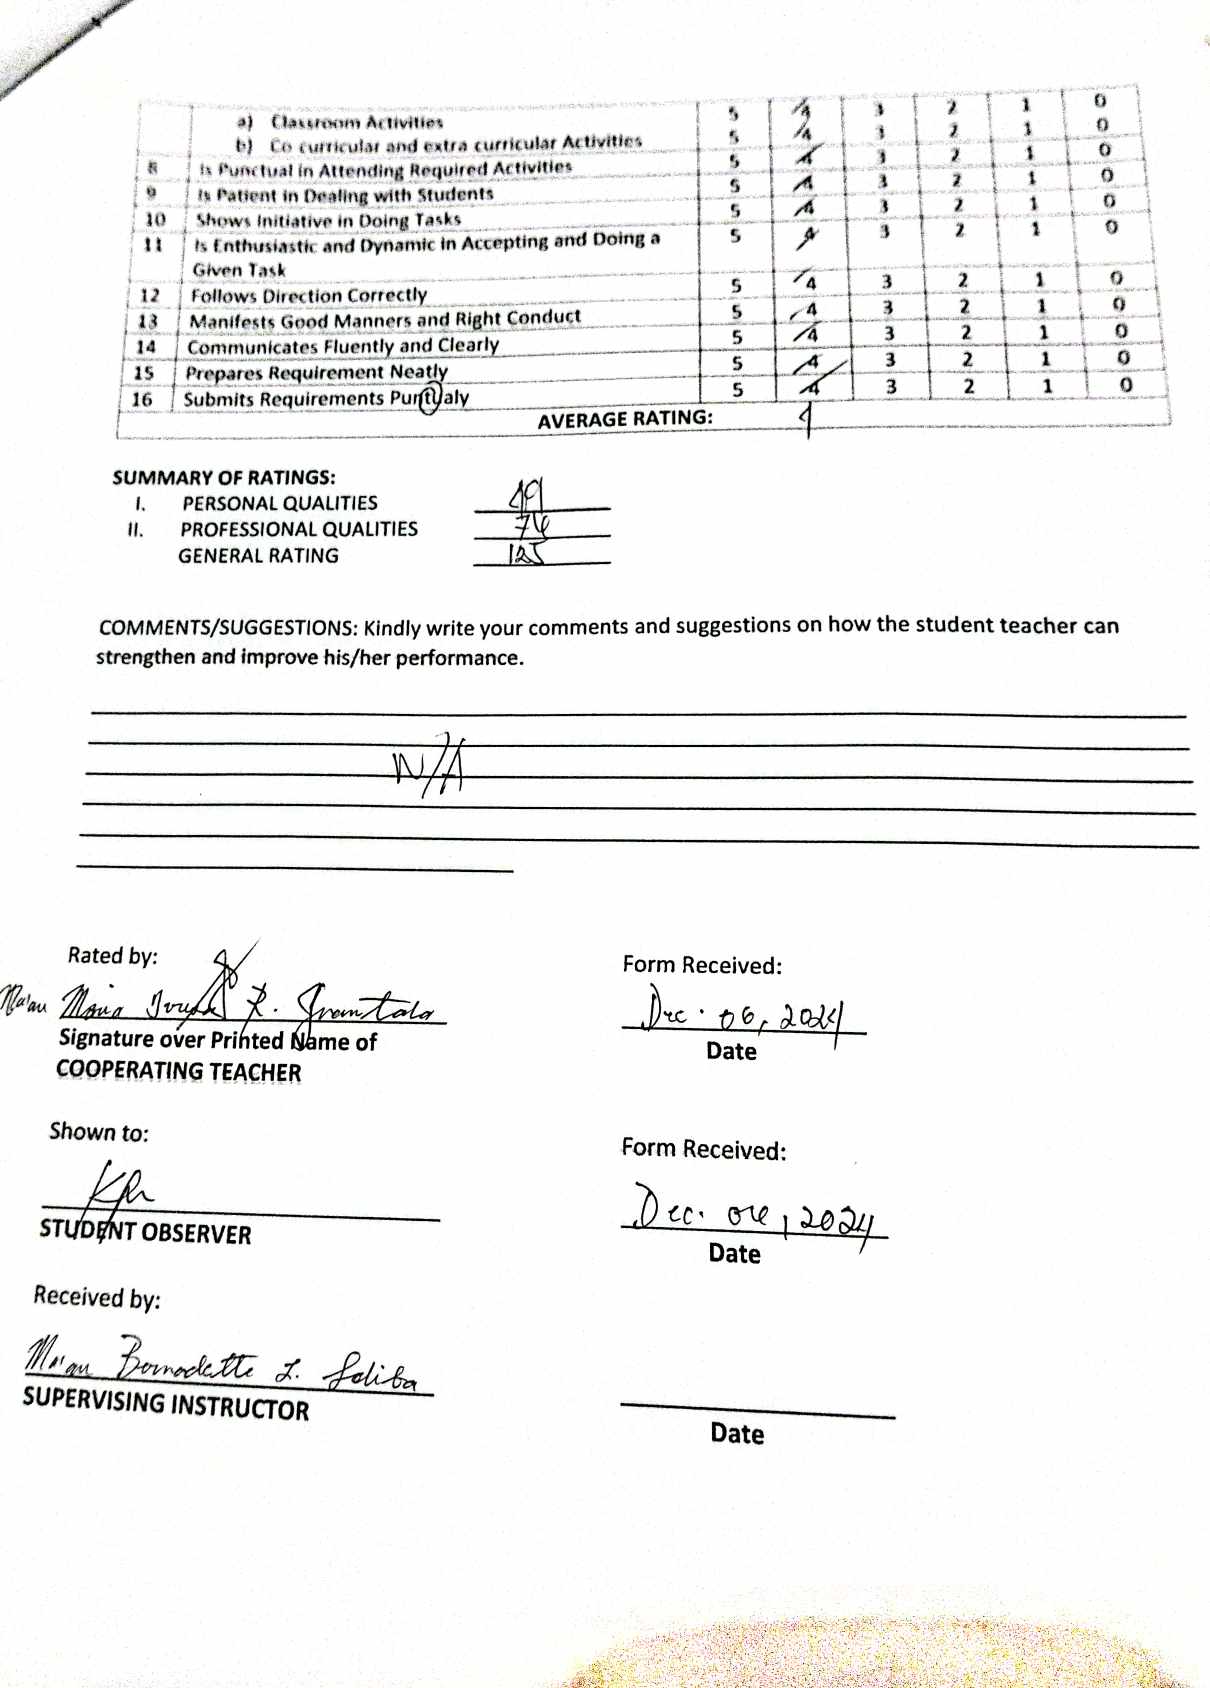 a) Classroom Activities 5 4 3 2 1 0
b) Co curricular and extra curricular Activities 5 4 3 2 1 0
8 Is Punctual in Attending Required Activities 5 4 3 2 1 0
9 Is Patient in Dealing with Students 5 4 3 2 1 0
10 Shows Initiative in Doing Tasks 5 4 3 2 1 0
11 Is Enthusiastic and Dynamic in Accepting and Doing a 5 4 3 2 1 0
Given Task
12 Follows Direction Correctly 5 4 3 2 1 0
13 Manifests Good Manners and Right Conduct 5 4 3 2 1 0
14 Communicates Fluently and Clearly 5 4 3 2 1 0
15 Prepares Requirement Neatly 5 4 3 2 1 0
16 Submits Requirements Puntualy 5 4 3 2 1 0
AVERAGE RATING: 4
SUMMARY OF RATINGS:
I. PERSONAL QUALITIES 49
II. PROFESSIONAL QUALITIES 76
GENERAL RATING 125
COMMENTS/SUGGESTIONS: Kindly write your comments and suggestions on how the student teacher can
strengthen and improve his/her performance.
N/A
Rated by:
Form Received:
Ma'am Maria R.
Dec. 06, 2024
Signature over Printed Name of
Date
COOPERATING TEACHER
Shown to:
Form Received:
Dec. 06, 2024
STUDENT OBSERVER
Date
Received by:
Ma'am Bernadette L. Saliba
SUPERVISING INSTRUCTOR
Date